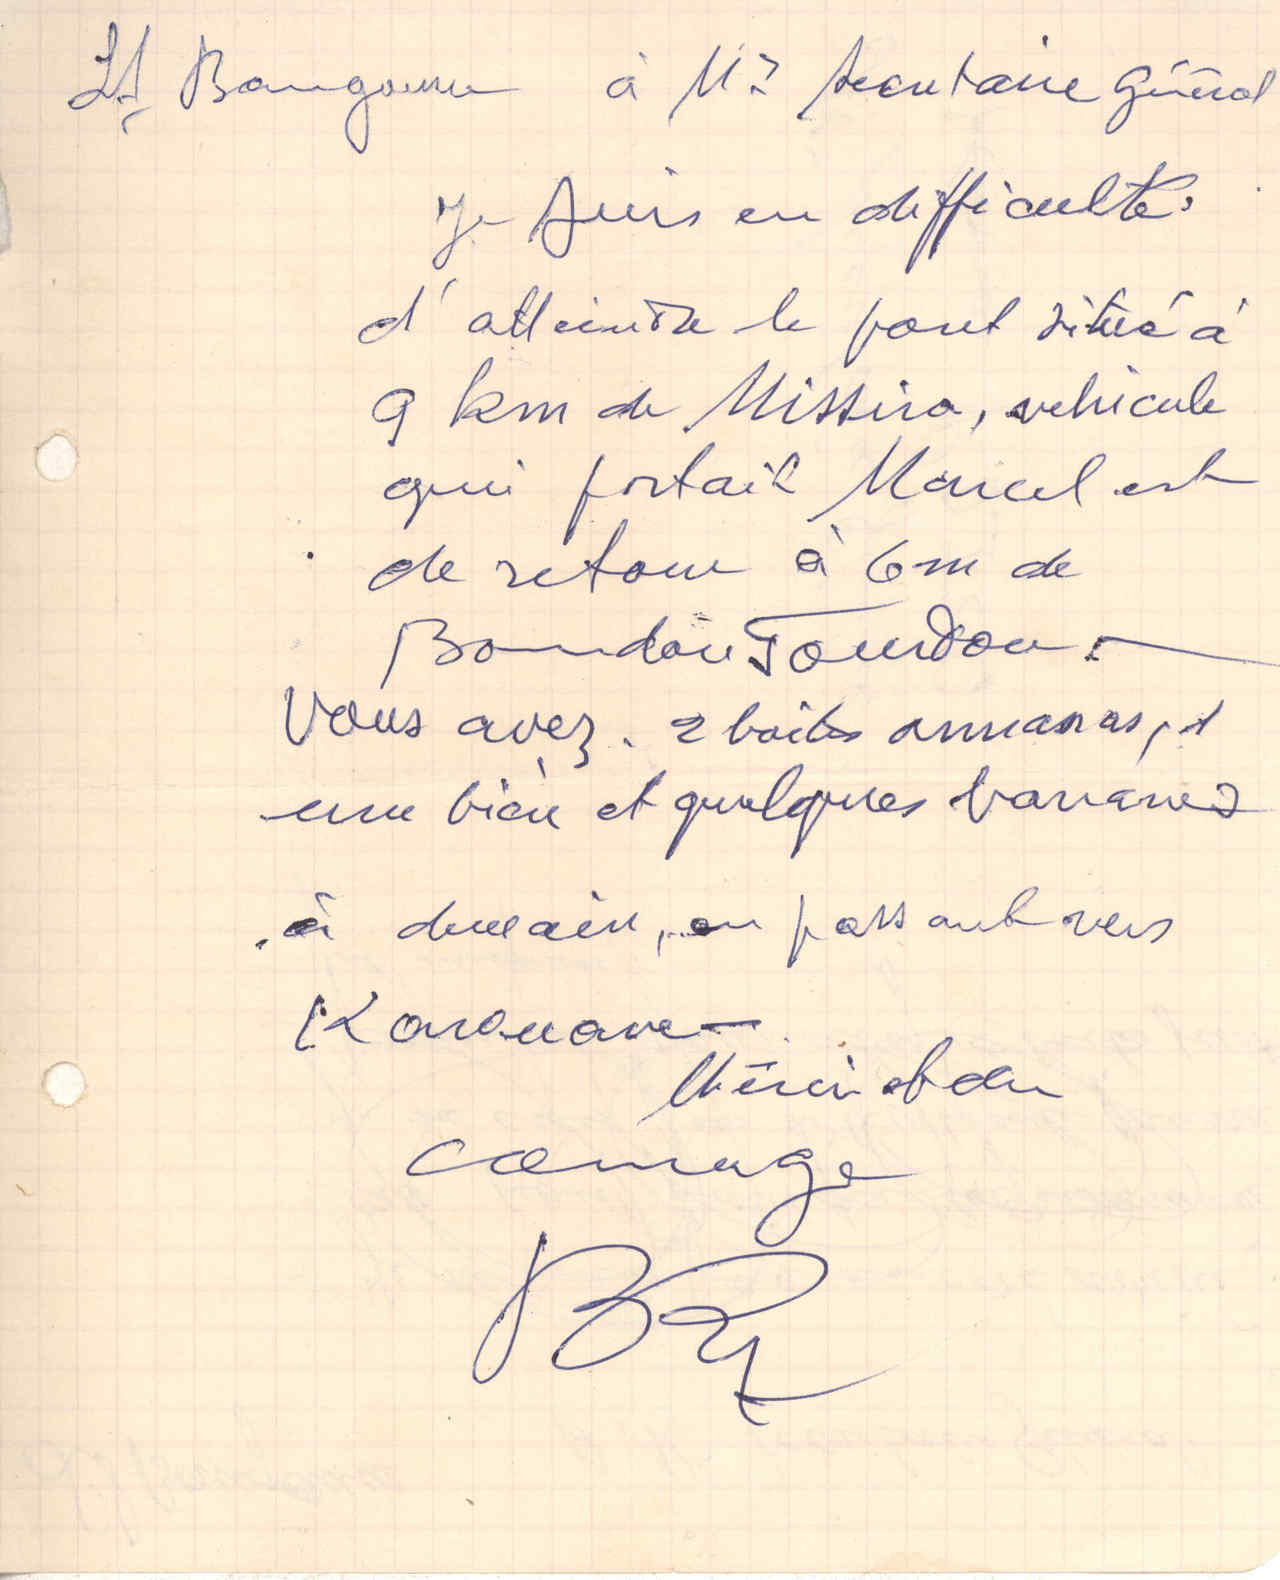 Lt Bangoura à Mr Secretaire Général
Je suis en difficulté
d'atteindre le pont situé à
9 km de Missira, vehicule
qui portait Marcel est
de retour à 6 m de
Boundou Fourdou
Vous avez 2 boites annanas,
une bière et quelques bananes
à demain, en passant vers
Merci et du
courage